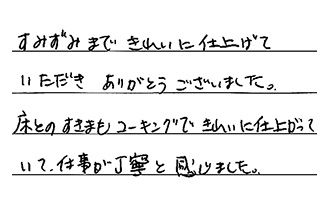 すみずみまで きれいに仕上げて
いただき ありがとうございました。
床とのすきまもコーキングできれいに仕上がって
いて、仕事が丁寧と感じました。